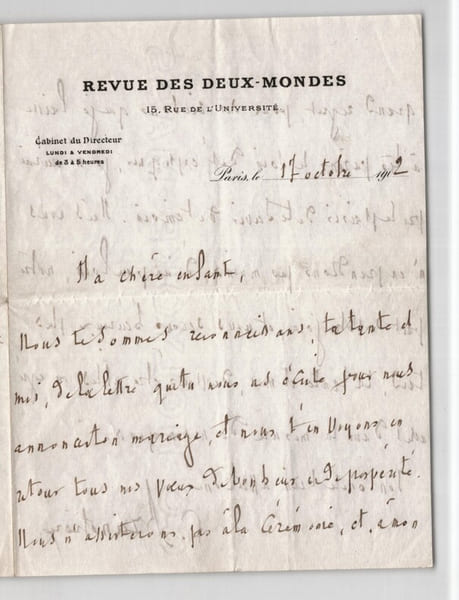 REVUE DES DEUX-MONDES
15, RUE DE L'UNIVERSITÉ
Cabinet du Directeur
LUNDI & VENDREDI
de 3 à 5 heures
Paris, le 17 octobre 1902
Ma chère enfant,
Nous te sommes reconnaissans, ta tante et
moi, de la lettre que tu nous as écrite pour nous
annoncer ton mariage, et nous t'envoyons en
retour tous nos vœux de bonheur et de prospérité.
Nous n'assisterons pas à la cérémonie, et, à mon